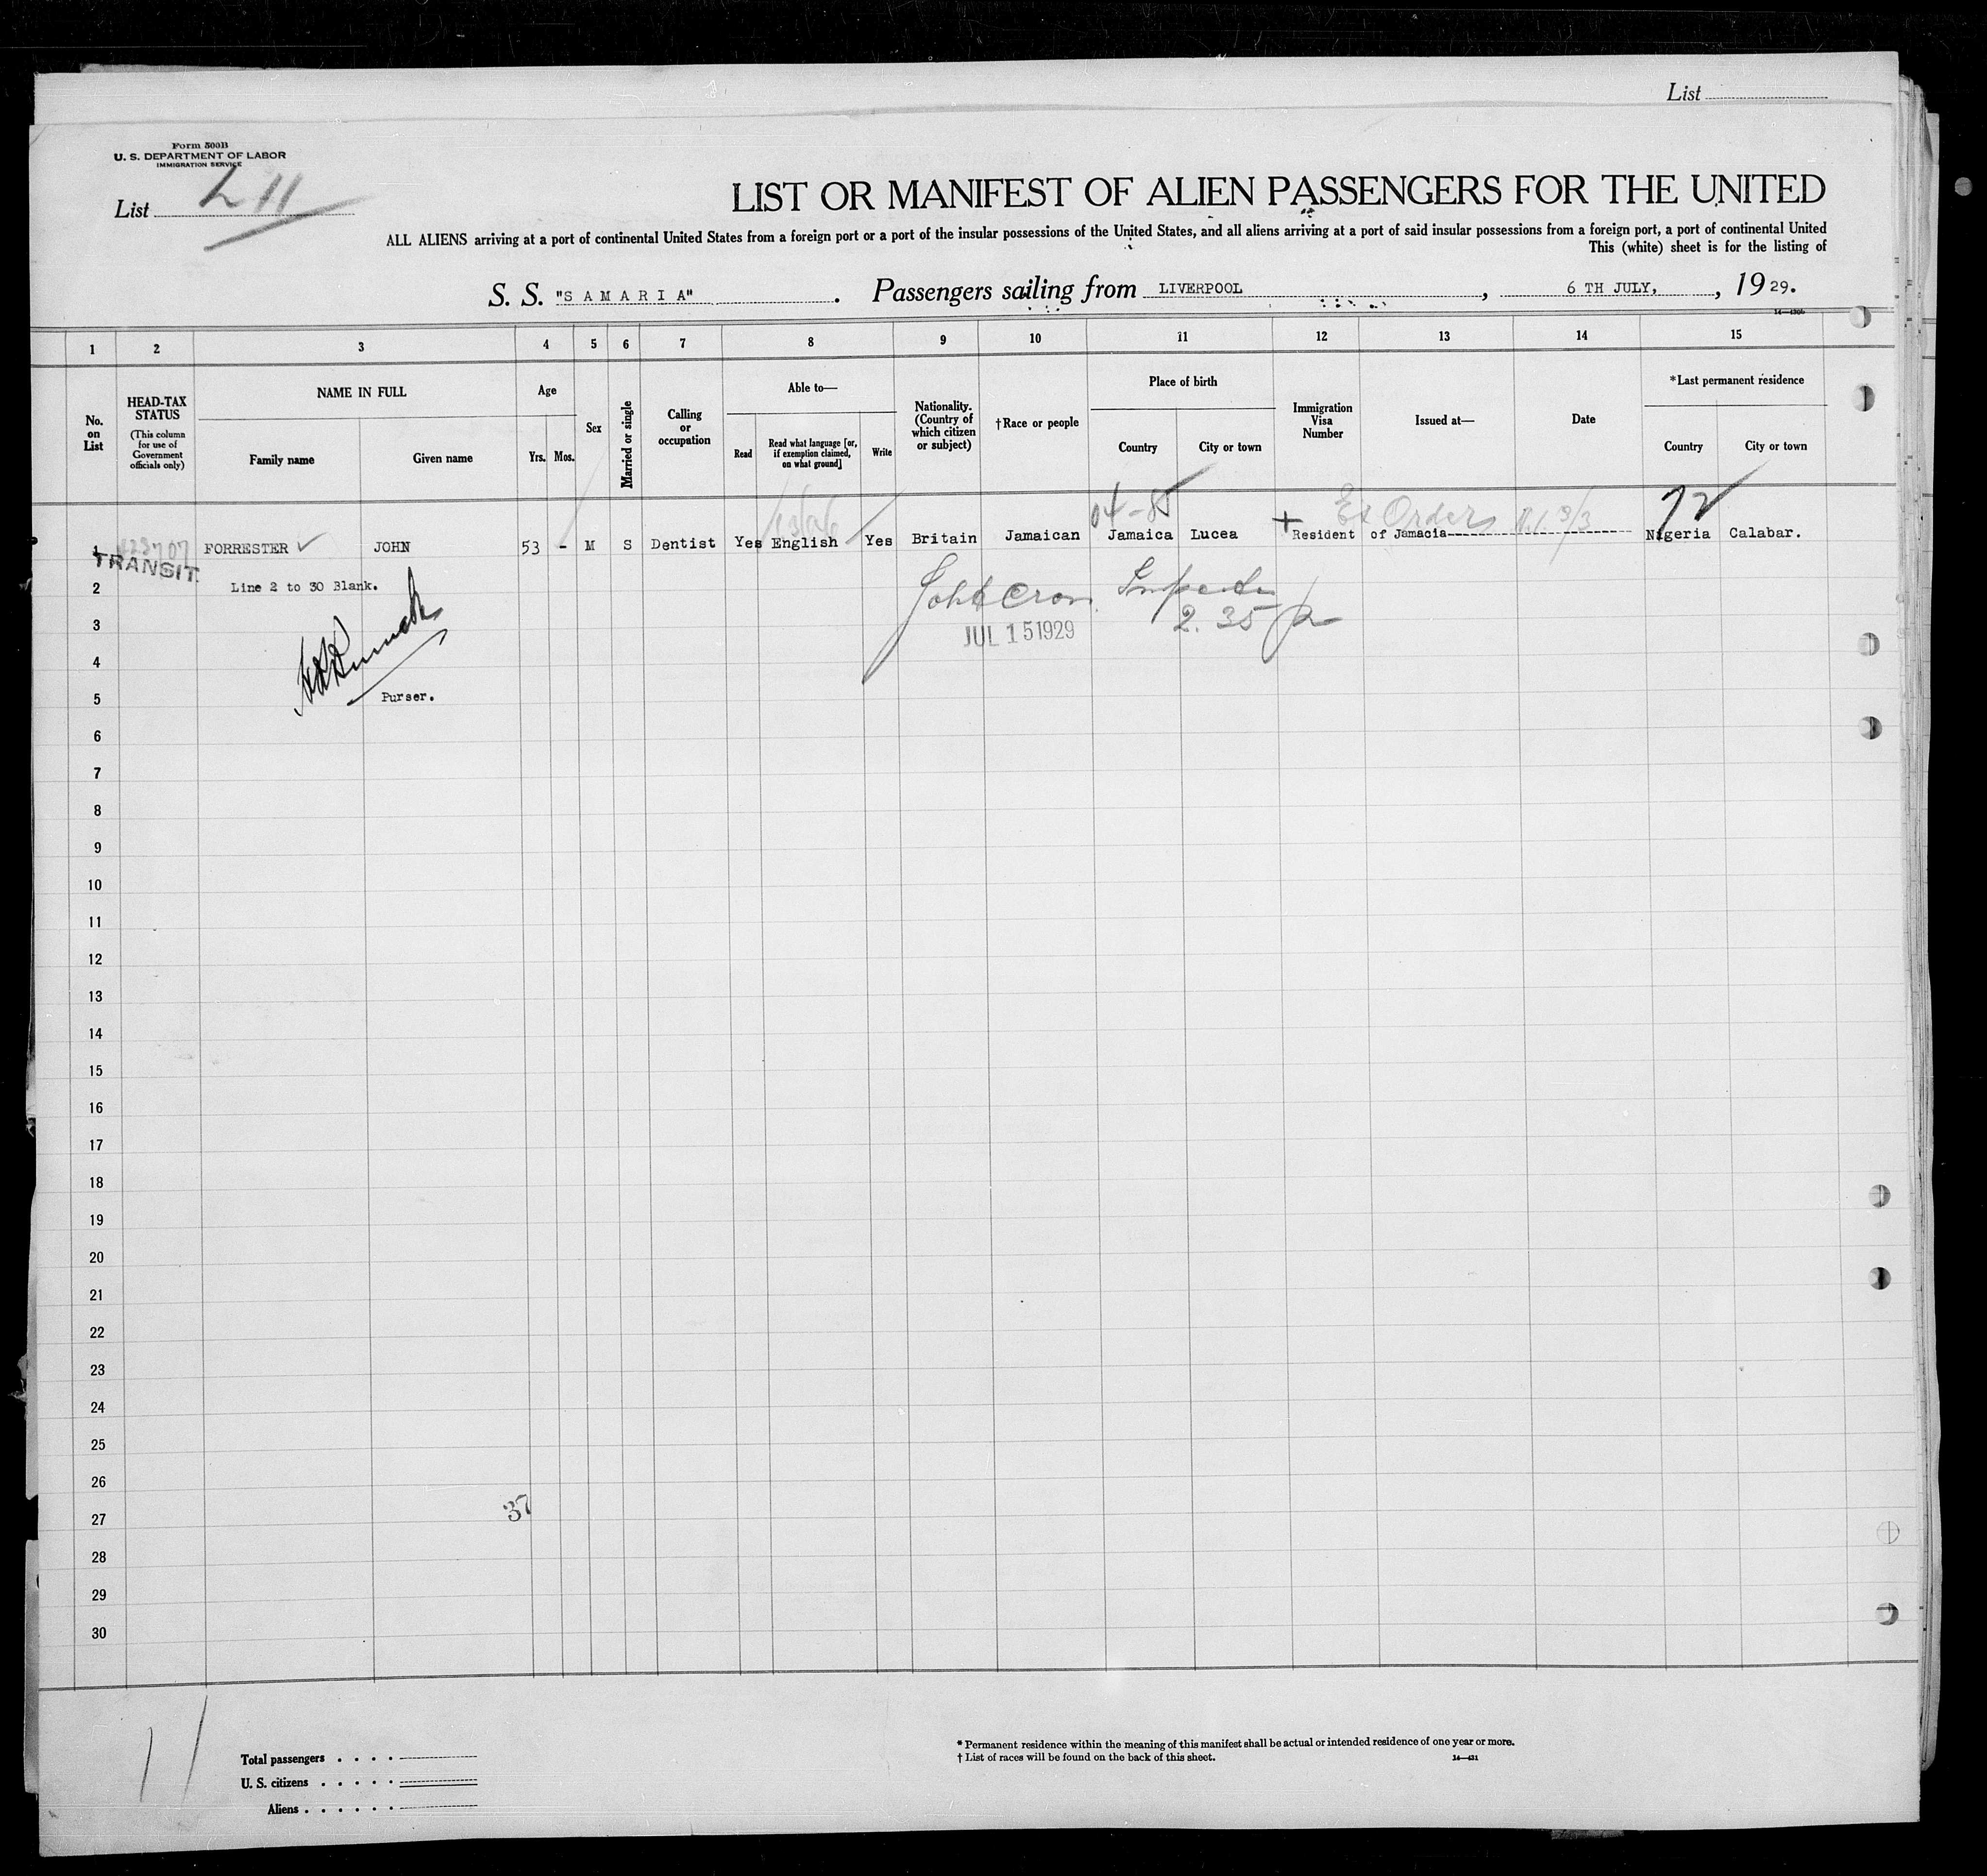 List
Form 500B
U. S. DEPARTMENT OF LABOR
IMMIGRATION SERVICE
List 211
LIST OR MANIFEST OF ALIEN PASSENGERS FOR THE UNITED
ALL ALIENS arriving at a port of continental United States from a foreign port or a port of the insular possessions of the United States, and all aliens arriving at a port of said insular possessions from a foreign port, a port of continental United
This (white) sheet is for the listing of
S. S. "S A M A R I A" . Passengers sailing from LIVERPOOL , 6 TH JULY, , 1929.
1 2 3 4 5 6 7 8 9 10 11 12 13 14 15
No. on List
HEAD-TAX STATUS
(This column for use of Government officials only)
NAME IN FULL
Family name Given name
Age
Yrs. Mos.
Sex
Married or single
Calling or occupation
Able to—
Read
Read what language [or, if exemption claimed, on what ground]
Write
Nationality. (Country of which citizen or subject)
†Race or people
Place of birth
Country City or town
Immigration Visa Number
Issued at—
Date
*Last permanent residence
Country City or town
04-85 Ex Orders 72
1 FORRESTER JOHN 53 - M S Dentist Yes English Yes Britain Jamaican Jamaica Lucea Resident of Jamacia Nigeria Calabar.
TRANSIT
2 Line 2 to 30 Blank.
John Cron Inspector
2.35
3 JUL 15 1929
4
5 Purser.
6
7
8
9
10
11
12
13
14
15
16
17
18
19
20
21
22
23
24
25
26
37
27
28
29
30
11
Total passengers . . . .
U. S. citizens . . . . .
Aliens . . . . . .
* Permanent residence within the meaning of this manifest shall be actual or intended residence of one year or more.
† List of races will be found on the back of this sheet.
14—431